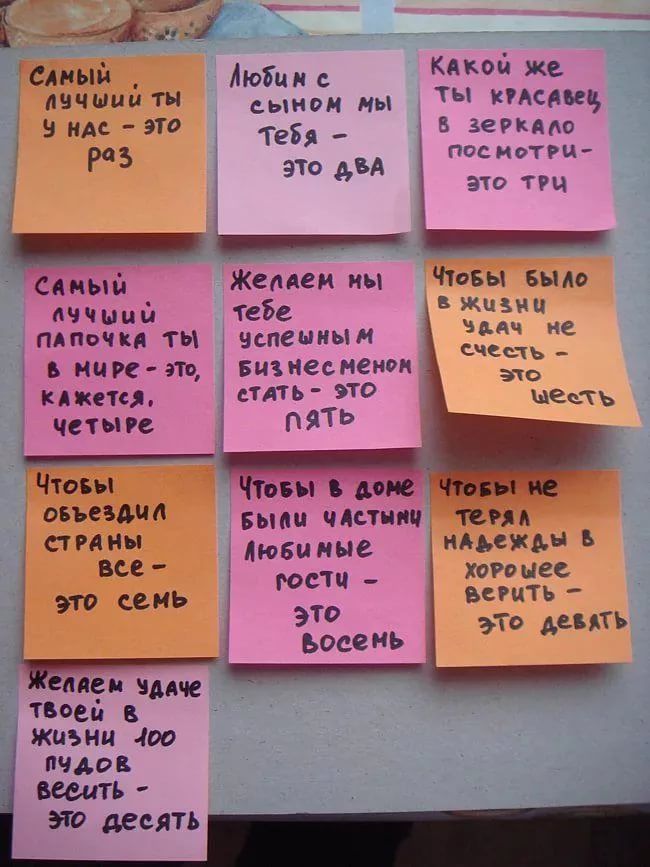 Самый
лучший ты
у нас – это
раз
Любим с
сыном мы
тебя –
это два
Какой же
ты красавец
в зеркало
посмотри–
это три
Самый
лучший
папочка ты
в мире – это,
кажется,
четыре
Желаем мы
тебе
успешным
бизнесменом
стать – это
пять
Чтобы было
в жизни
удач не
счесть –
это
шесть
Чтобы
объездил
страны
все –
это семь
Чтобы в доме
были частыми
любимые
гости –
это
восемь
Чтобы не
терял
надежды в
хорошее
верить –
это девять
Желаем удаче
твоей в
жизни 100
пудов
весить –
это десять